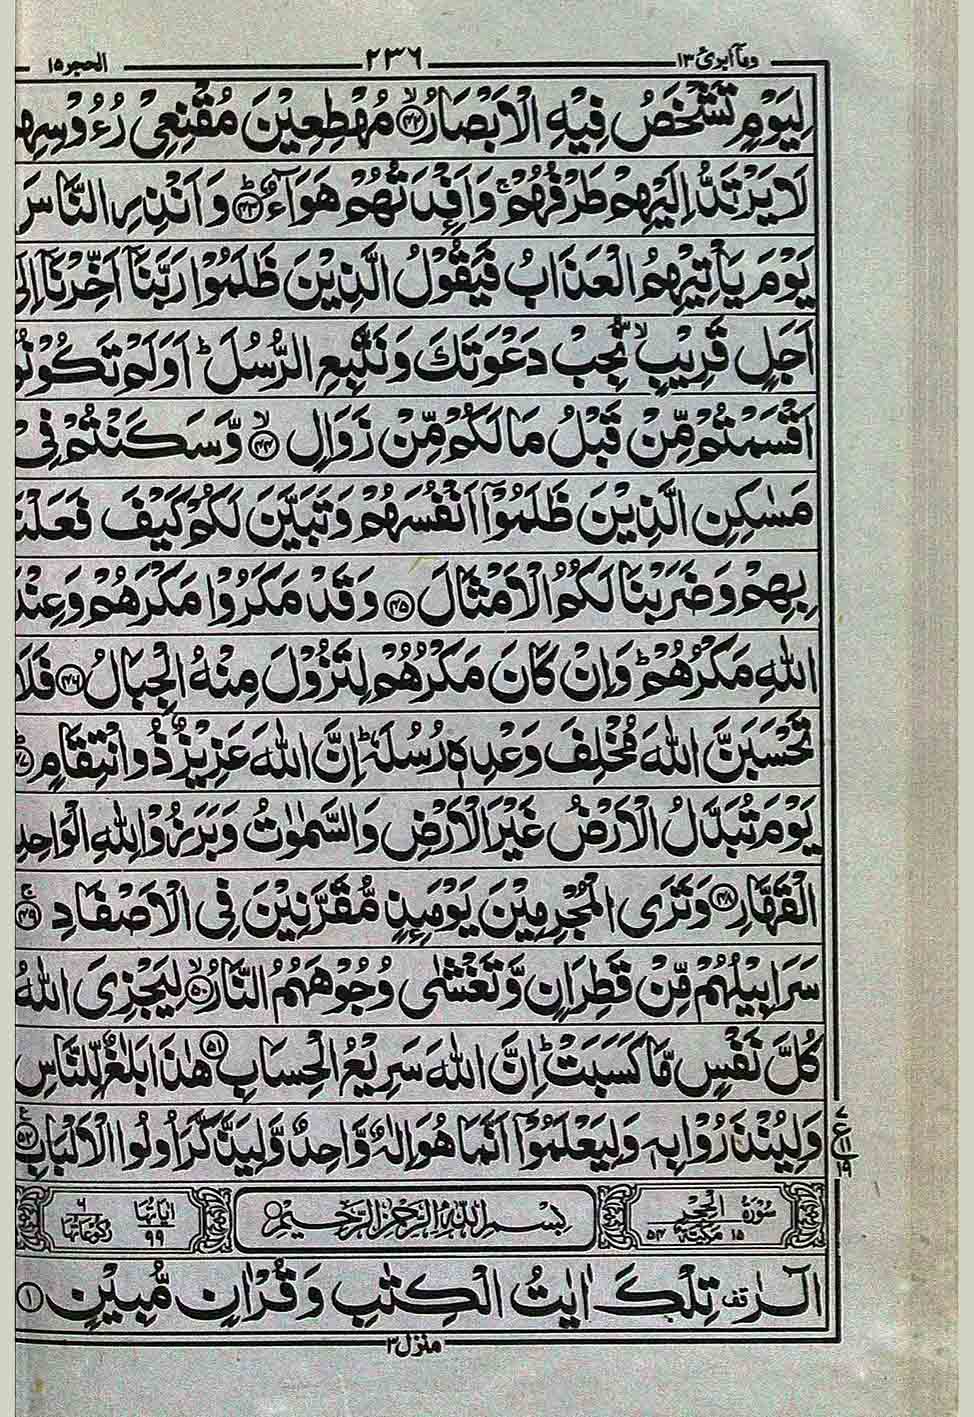 ومآ ابرئ ۱۳ ۲۳۶ الحجر ۱۵
لِيَوْمٍ تَشْخَصُ فِيْهِ الْاَبْصَارُ ۙ﴿۴۲﴾ مُهْطِعِيْنَ مُقْنِعِىْ رُءُوْسِهِمْ
لَا يَرْتَدُّ اِلَيْهِمْ طَرْفُهُمْ ۚ وَاَفْـِٕدَتُهُمْ هَوَآءٌ ؕ﴿۴۳﴾ وَاَنْذِرِ النَّاسَ
يَوْمَ يَاْتِيْهِمُ الْعَذَابُ فَيَقُوْلُ الَّذِيْنَ ظَلَمُوْا رَبَّنَاۤ اَخِّرْنَاۤ اِلٰٓى
اَجَلٍ قَرِيْبٍ ۙ نُّجِبْ دَعْوَتَكَ وَنَتَّبِعِ الرُّسُلَ ؕ اَوَلَمْ تَكُوْنُوْۤا
اَقْسَمْتُمْ مِّنْ قَبْلُ مَا لَكُمْ مِّنْ زَوَالٍ ۙ﴿۴۴﴾ وَّسَكَنْتُمْ فِىْ
مَسٰكِنِ الَّذِيْنَ ظَلَمُوْۤا اَنْفُسَهُمْ وَتَبَيَّنَ لَكُمْ كَيْفَ فَعَلْنَا
بِهِمْ وَضَرَبْنَا لَكُمُ الْاَمْثَالَ ﴿۴۵﴾ وَقَدْ مَكَرُوْا مَكْرَهُمْ وَعِنْدَ
اللّٰهِ مَكْرُهُمْ ؕ وَاِنْ كَانَ مَكْرُهُمْ لِتَزُوْلَ مِنْهُ الْجِبَالُ ﴿۴۶﴾ فَلَا
تَحْسَبَنَّ اللّٰهَ مُخْلِفَ وَعْدِهٖ رُسُلَهٗ ؕ اِنَّ اللّٰهَ عَزِيْزٌ ذُو انْتِقَامٍ ؕ﴿۴۷﴾
يَوْمَ تُبَدَّلُ الْاَرْضُ غَيْرَ الْاَرْضِ وَالسَّمٰوٰتُ وَبَرَزُوْا لِلّٰهِ الْوَاحِدِ
الْقَهَّارِ ﴿۴۸﴾ وَتَرَى الْمُجْرِمِيْنَ يَوْمَئِذٍ مُّقَرَّنِيْنَ فِى الْاَصْفَادِ ۚ﴿۴۹﴾
سَرَابِيْلُهُمْ مِّنْ قَطِرَانٍ وَّتَغْشٰى وُجُوْهَهُمُ النَّارُ ۙ﴿۵۰﴾ لِيَجْزِىَ اللّٰهُ
كُلَّ نَفْسٍ مَّا كَسَبَتْ ؕ اِنَّ اللّٰهَ سَرِيْعُ الْحِسَابِ ﴿۵۱﴾ هٰذَا بَلٰغٌ لِّلنَّاسِ
وَلِيُنْذَرُوْا بِهٖ وَلِيَعْلَمُوْۤا اَنَّمَا هُوَ اِلٰهٌ وَّاحِدٌ وَّلِيَذَّكَّرَ اُولُوا الْاَلْبَابِ ﴿۵۲﴾
۷ ع ۱۱ ۱۹
سُوْرَةُ الْحِجْرِ ۱۵ مَكِّيَّةٌ ۵۴ بِسْمِ اللّٰهِ الرَّحْمٰنِ الرَّحِيْمِ اٰيَاتُهَا ۹۹ رُكُوْعَاتُهَا ۶
الٓرٰ ࣞتِلْكَ اٰيٰتُ الْكِتٰبِ وَقُرْاٰنٍ مُّبِيْنٍ ﴿۱﴾
منزل ۳